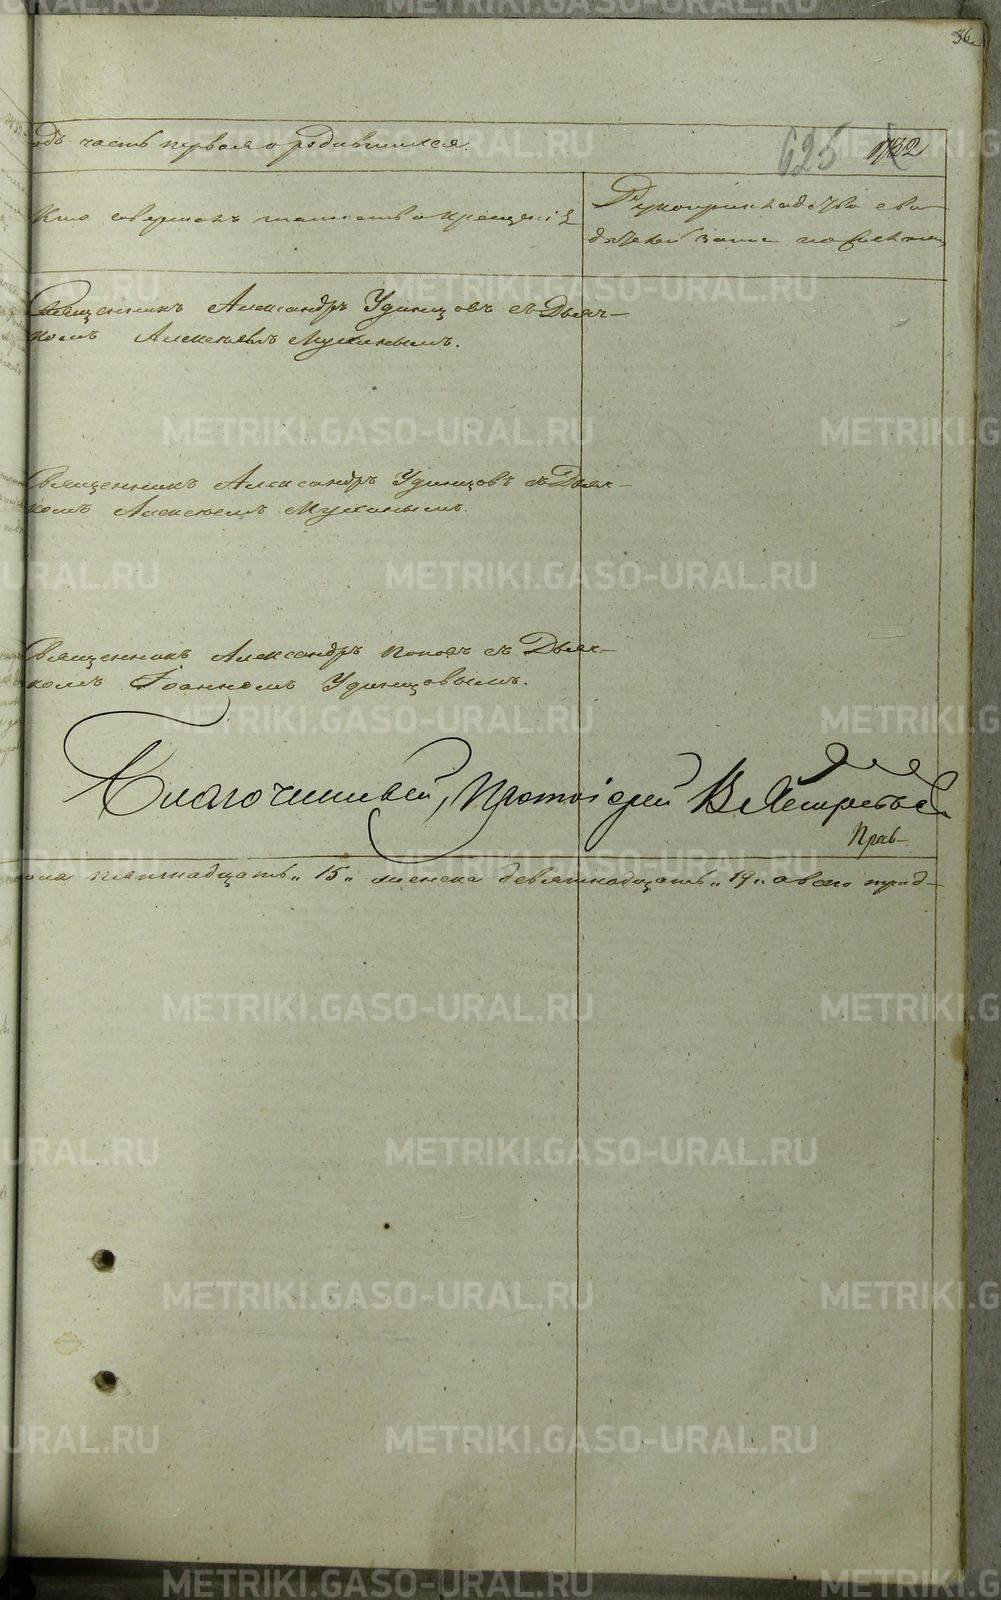 36
одъ часть первая о родившихся.
625 1732
Кто совершалъ таинство крещенія
Рукоприкладство сви-
дѣтелей записи по желанію
Священникъ Александръ Удинцовъ съ Дьяч-
комъ Алексѣемъ Мухинымъ.
Священникъ Александръ Удинцовъ съ Дьяч-
комъ Алексѣемъ Мухинымъ.
Священникъ Александръ Поповъ съ Дьяч-
комъ Іоанномъ Удинцовымъ.
Благочинный, Протоіерей В
Прав-
пола пятнадцать „15„ женска девятнадцать „19„ а всего трид-